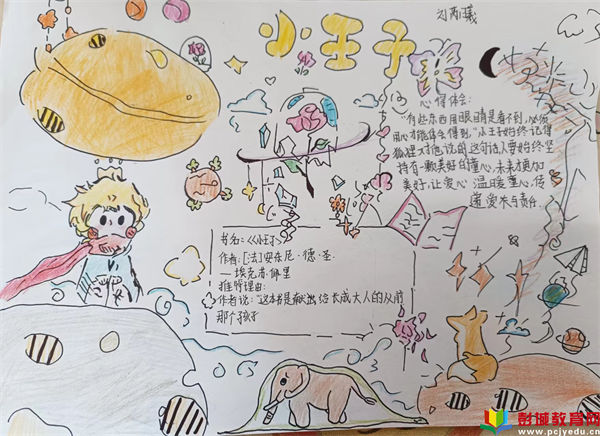 小王子
心得体会：
"有些东西用眼睛是看不到，必须
用心才能体会得到。"小王子始终记得
狐狸对他说的这句话，人要始终坚
持有一颗美好的童心，未来更加
美好，让爱心温暖童心，传
递爱心与责任.
书名：《小王子》
作者：[法]安东尼·德·圣
—埃克苏佩里
推荐理由：
作者说："这本书是献给长成大人的从前
那个孩子
彭城教育网
www.pcjyedu.cn